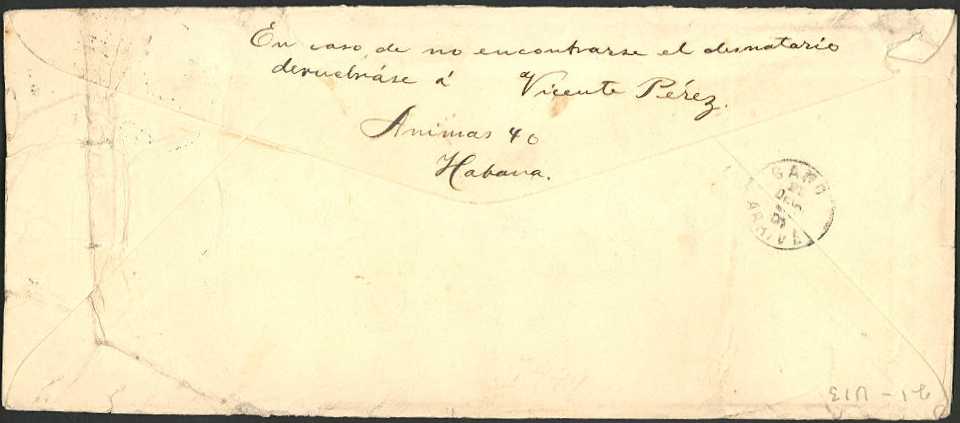 En caso de no encontrarse el desnatario
devuelváse á Vicente Pérez.
Animas 40
Habana.
GAND
DEC
ARRIVÉ
21-V13